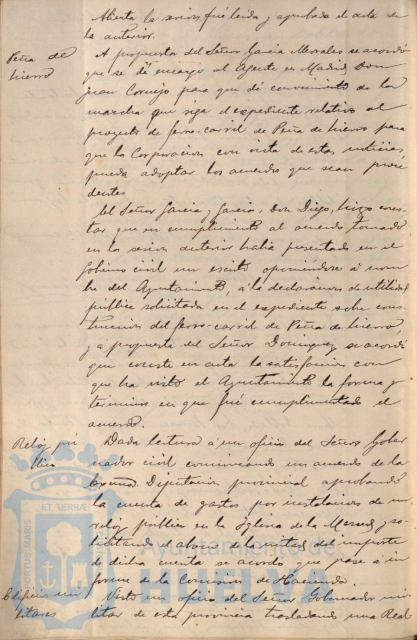 Abierta la sesion fué leida y aprobada el acta de
la anterior.
Peña de
hierro
A propuesta del Señor Garcia Morales se acordó
que se dé encargo al Agente en Madrid Don
Juan Cornejo para que dé conocimiento de la
marcha que siga el expediente relativo al
proyecto de ferro-carril de Peña de hierro para
que la Corporacion con vista de estas noticias
pueda adoptar los acuerdos que sean proce
dentes
El Señor Garcia y Garcia, Don Diego, hizo cons
tar que en cumplimiento al acuerdo tomado
en la sesion anterior habia presentado en el
Gobierno civil un escrito oponiendose á nom
bre del Ayuntamiento, á la declaracion de utilidad
pública solicitada en el expediente sobre cons
truccion del ferro-carril de Peña de hierro,
y á propuesta del Señor Dominguez se acordó
que conste en acta la satisfaccion con
que ha visto el Ayuntamiento la forma y
términos en que fué cumplimentado el
acuerdo.
Reloj pú
blico
Dada lectura á un oficio del Señor Gober
nador civil comunicando un acuerdo de la
Excma. Diputacion provincial aprobando
la cuenta de gastos por instalacion de un
reloj público en la Iglesia de la Merced y so-
licitando el abono de la mitad del importe
de dicha cuenta se acordó que pase á in
forme de la Comision de Hacienda.
Edificios mi
litares
Visto un oficio del Señor Gobernador mi
litar de esta provincia trasladando una Real
PORTUS MARIS
ET TERRÆ
Ayuntamiento de
HUELVA